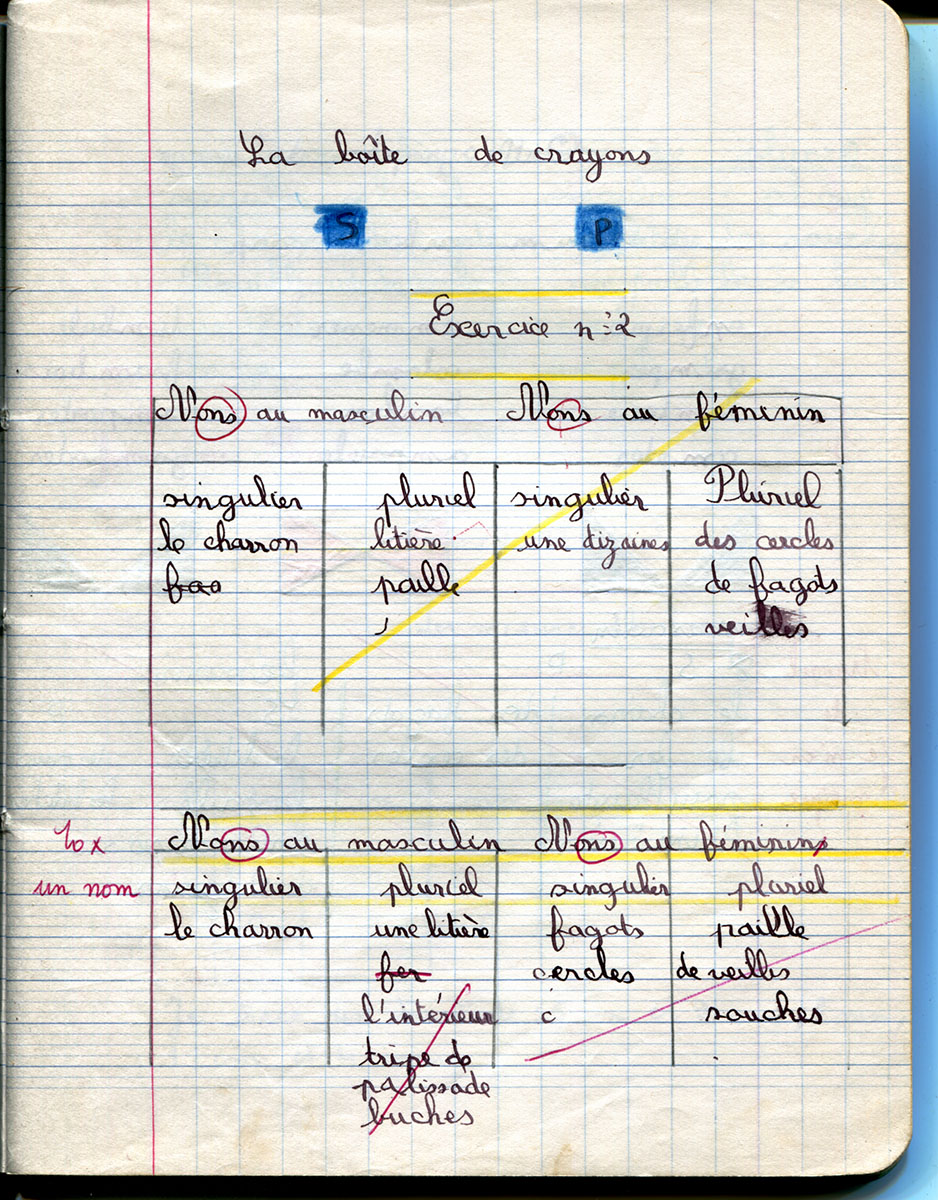 La boîte de crayons
S P
Exercice n:2
Nons au masculin Nons au féminin
singulier pluriel singulier Pluriel
le charron litière une dizaines des cercles
fao paille de fagots
veilles
Nons au masculin Nons au féminin
10 x
un nom singulier pluriel singulier pluriel
le charron une litière fagots paille
fer cercles de veilles
l'intérieur c souches
tripe de
palissade
buches